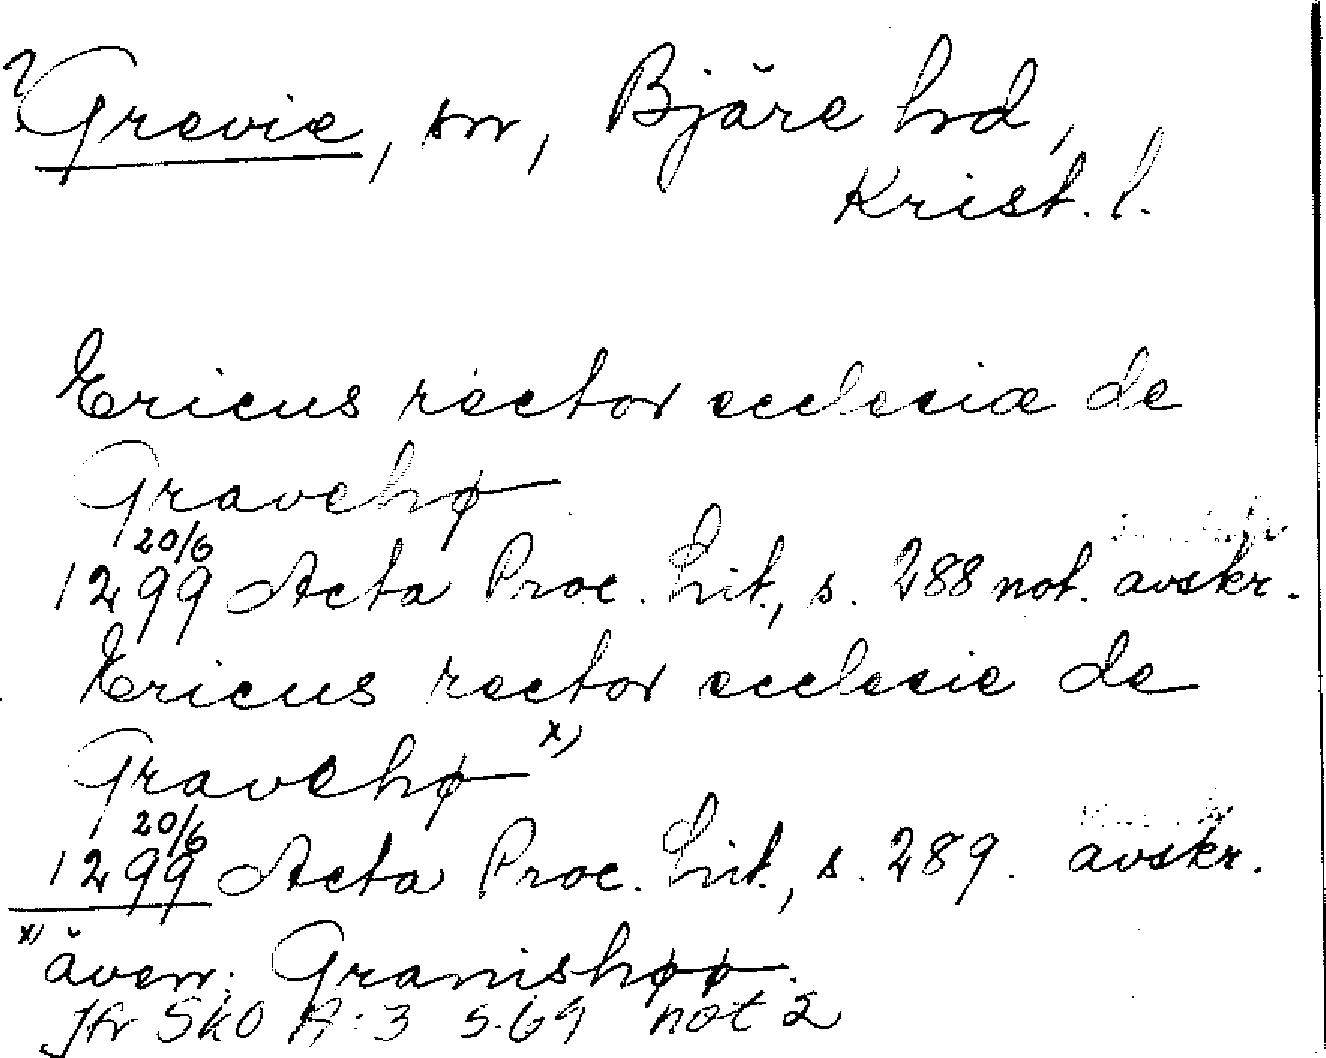 ? Grevie, sn, Bjäre hd,
Krist. l.
Ericus rector ecclesiæ de
Gravehø
20/6
1299 Acta Proc. Lit., s. 288 not. avskr.
Ericus rector ecclesie de
Gravehø x)
20/6
1299 Acta Proc. Lit., s. 289. avskr.
x) även: Granishøø.
Jfr SkO A:3 s. 69 not 2